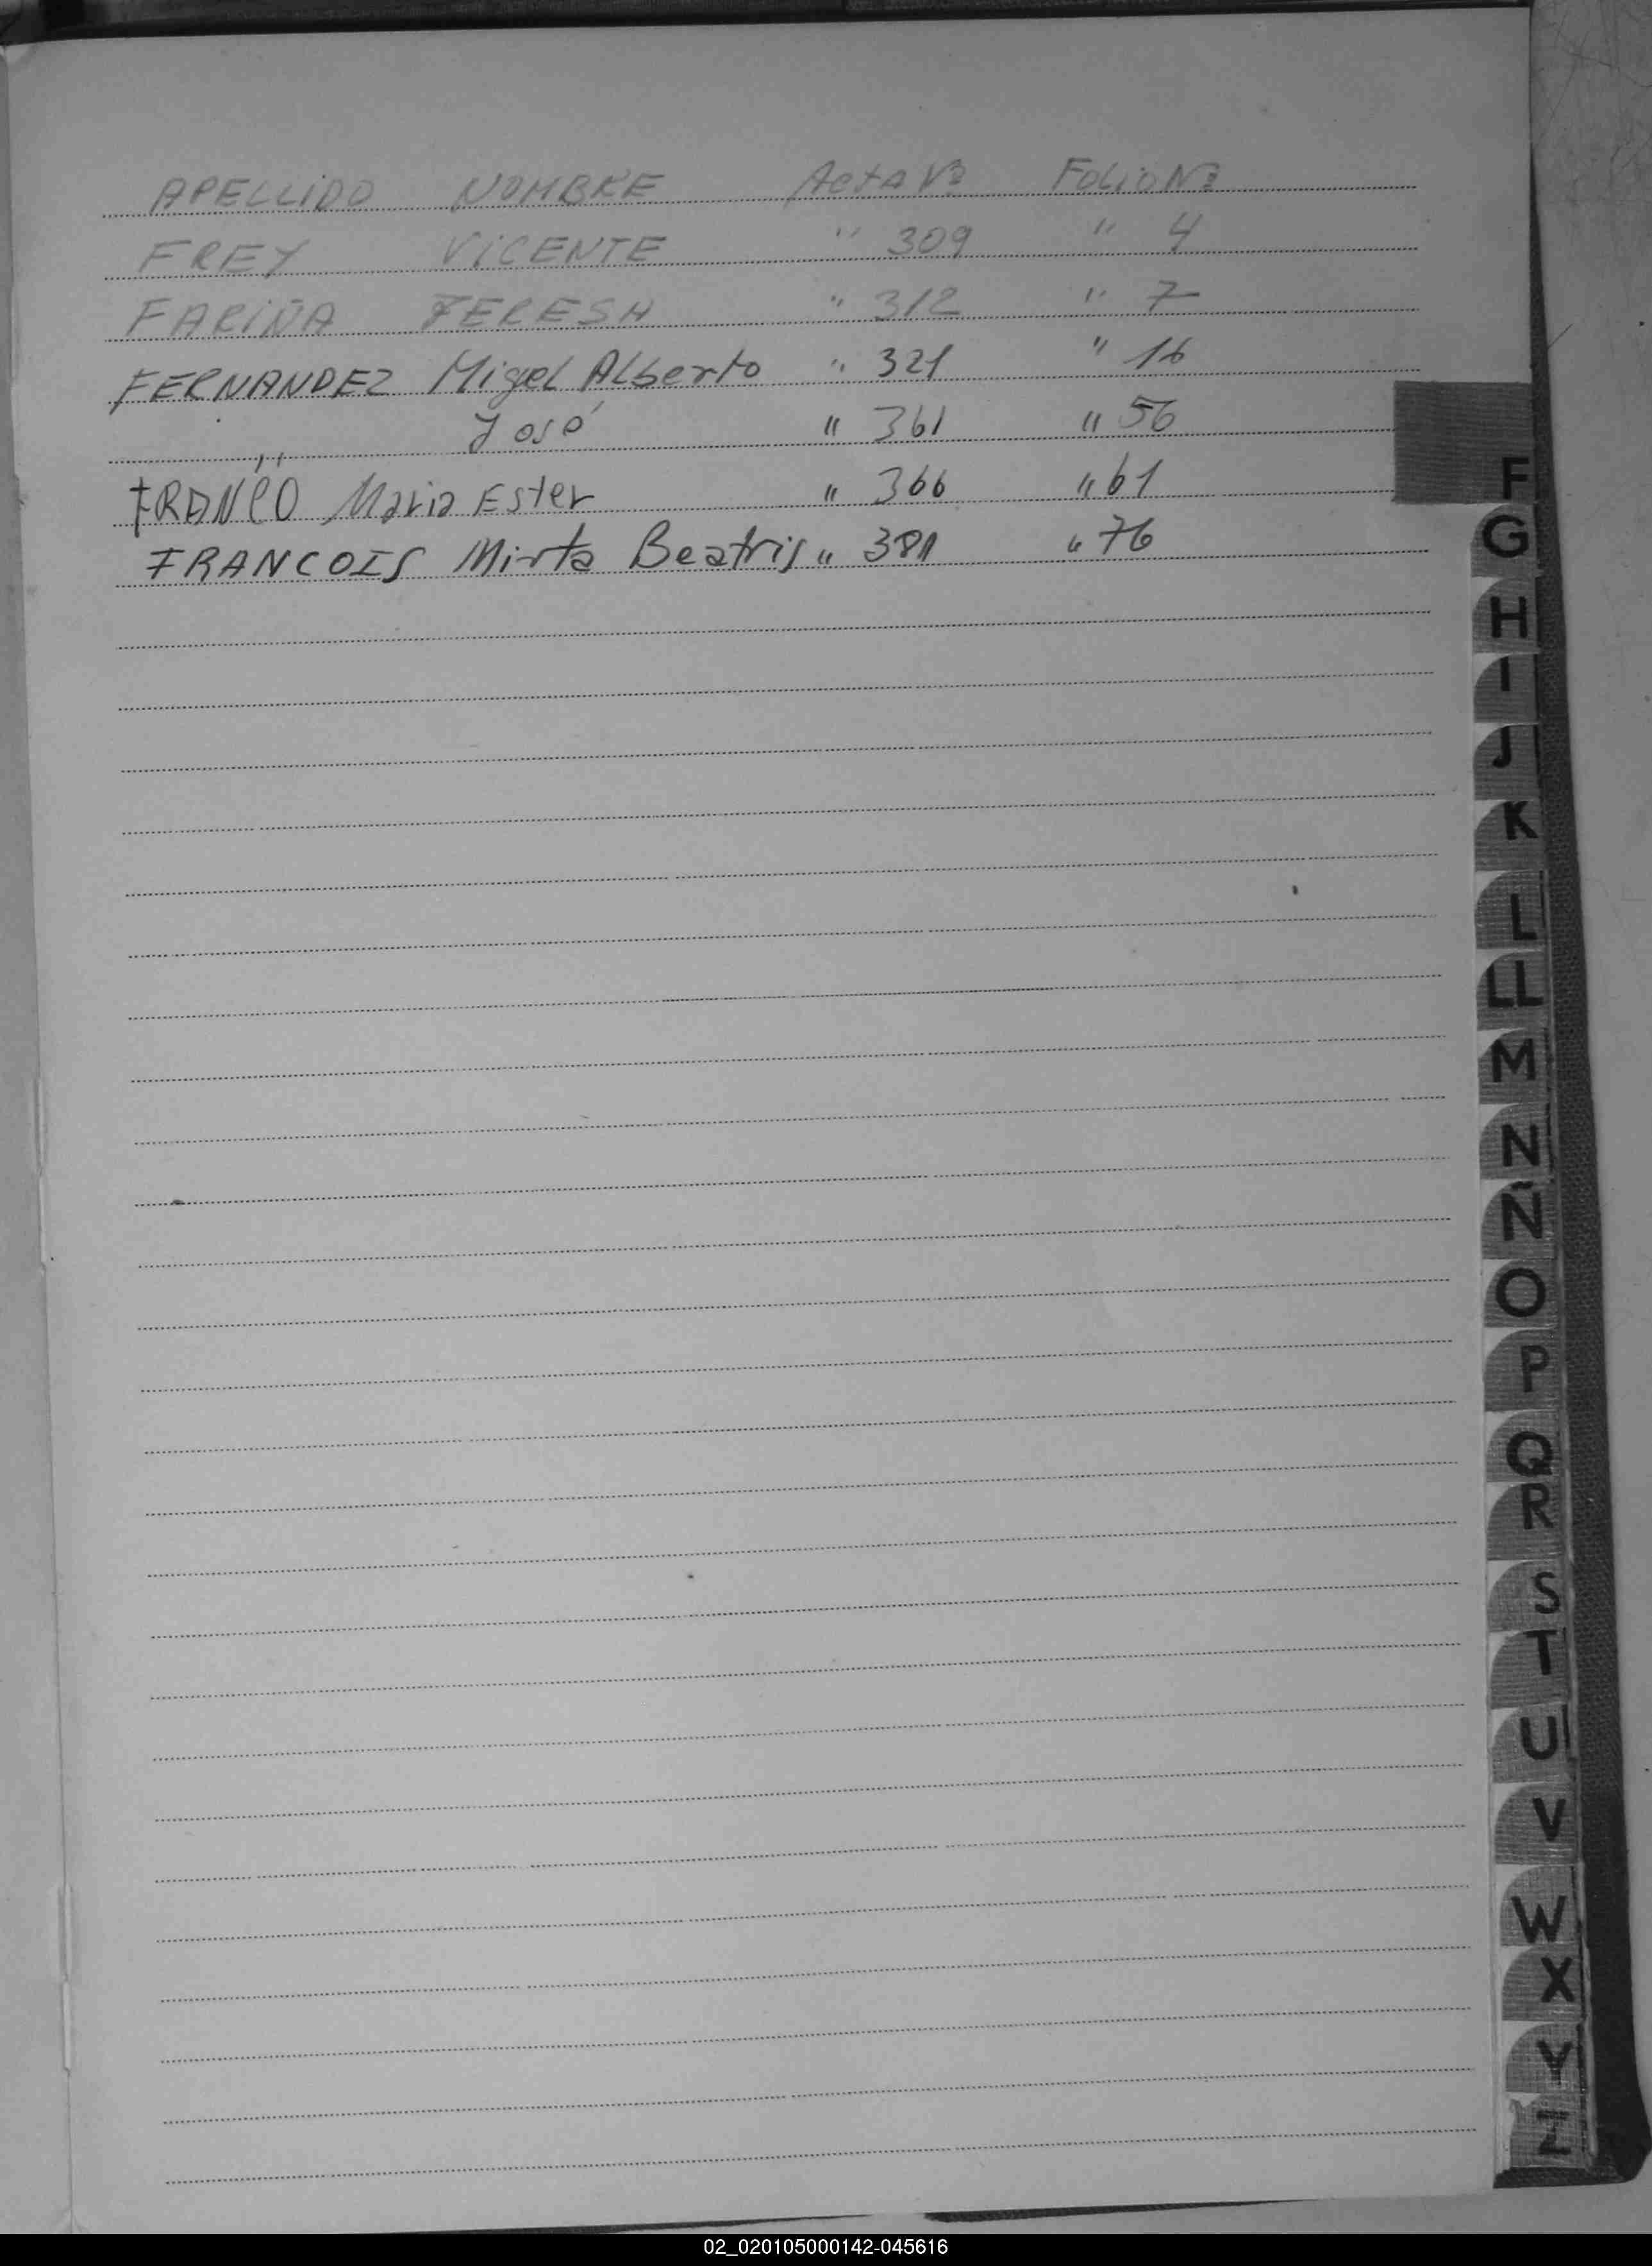 APELLIDO NOMBRE Acta Nº Folio Nº
FREY VICENTE " 309 " 4
FARIÑA TERESA " 312 " 7
FERNANDEZ Migel Alberto " 321 " 16
" José " 361 " 56
FRANCO Maria Ester " 366 " 61
FRANCOIS Mirta Beatris " 381 " 76
F
G
H
I
J
K
L
LL
M
N
Ñ
O
P
Q
R
S
T
U
V
W
X
Y
Z
02_020105000142-045616